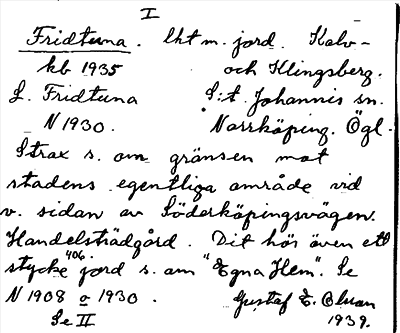 I
Fridtuna. lht m. jord. Kalv-
kb 1935 och Klingsberg.
L. Fridtuna S:t Johannis sn.
N 1930. Norrköping. Ögl.
Strax s. om gränsen mot
stadens egentliga område vid
v. sidan av Söderköpingsvägen.
Handelsträdgård. Dit hör även ett
stycke 406 jord s. om "Egna Hem". Se
N 1908 o 1930. Gustaf E. Olson
Se II 1939.